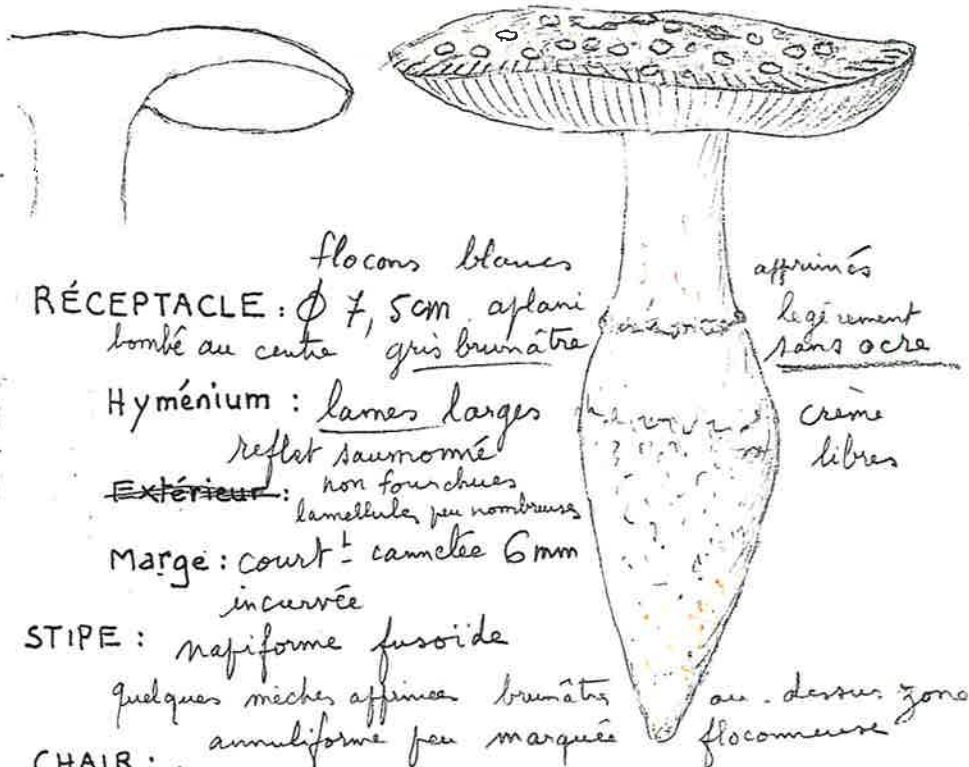 flocons blancs apprimés
RÉCEPTACLE : φ 7,5cm aplani légèrement
bombé au centre gris brunâtre sans ocre
Hyménium : lames larges crème
reflet saumonné libres
Extérieur : non fourchues
lamellules peu nombreuses
Marge : courtᵗ cannelée 6mm
incurvée
STIPE : napiforme fusoïde
quelques mèches apprimées brunâtres au-dessus zone
annuliforme peu marquée floconneuse
CHAIR :